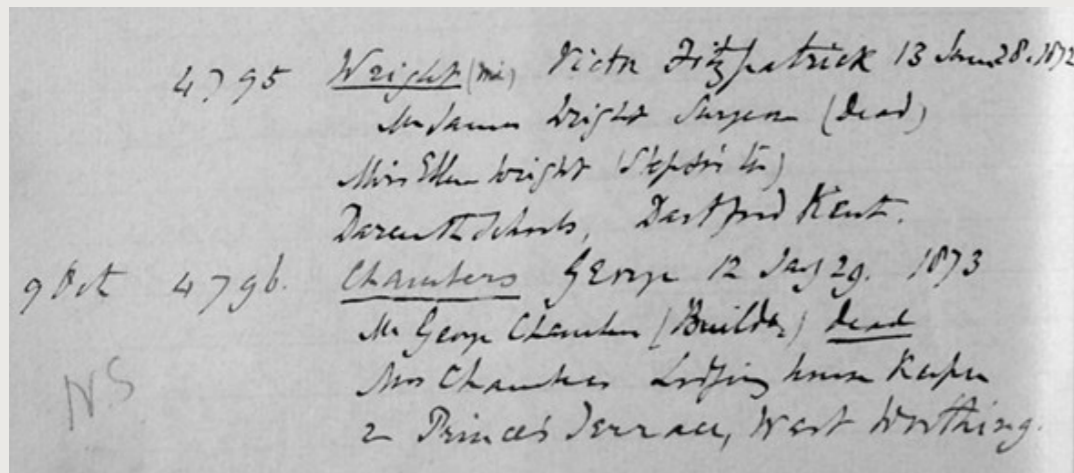 4795 Wright (mi) Victor Fitzpatrick 13 June 28. 1872
Mr James Wright Surgeon (dead)
Miss Ellen Wright (Stepsister)
Darenth Schools, Dartford Kent.
9 Oct 4796. Chambers George 12 Jany 29. 1873
Mr George Chambers (Builder) dead
Mrs Chambers Lodging house Keeper
2 Princes Terrace, West Worthing.
NS